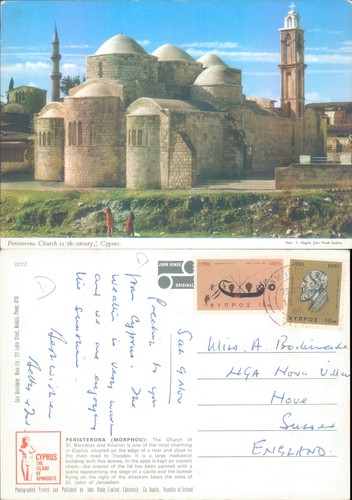 Peristerona Church (10th century,) Cyprus.
2CY2
JOHN HINDE
ORIGINAL
KIBRIS
CYPRUS
ΚΥΠΡΟΣ
KIBRIS
CYPRUS
ΚΥΠΡΟΣ
Sat 9 Nov
Greetings to you
from Cyprus. The
weather is very warm
and we are enjoying
the sunshine.
Best wishes
Miss. A.
Hove
Sussex
ENGLAND.
CYPRUS
THE
ISLAND
OF
APHRODITE
PERISTERONA (MORPHOU): The Church of
St. Barnabas and Hilarion is one of the most charming
in Cyprus, situated on the edge of a river and close to
the main road to Troodos. It is a large mediaeval
building with five domes. In the apse is kept an ancient
chest—the interior of the lid has been painted with a
scene representing the siege of a castle and the banner
flying on the right of the attackers bears the arms of
St. John of Jerusalem.
Photographed, Printed and Published by John Hinde Limited, Cabinteely, Co. Dublin, Republic of Ireland